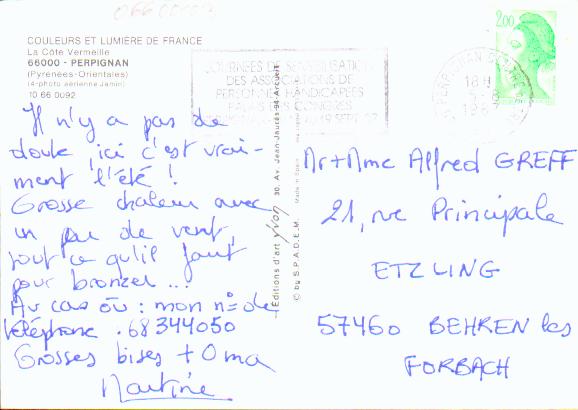 COULEURS ET LUMIÈRE DE FRANCE
La Côte Vermeille
66000 - PERPIGNAN
(Pyrénées-Orientales)
(4-photo aérienne Jamin)
10 66 0092
Il n'y a pas de
doute, ici c'est vrai-
ment l'été !
Grosse chaleur avec
un peu de vent,
tout ce qu'il faut
pour bronzer...!
Au cas où : mon n° de
téléphone . 68 344050
Grosses bises + Oma
Martine
Editions d'art yvon 30, Av. Jean-Jaurès-94-Arcueil
© by S.P.A.D.E.M. Made in
JOURNEES DE SENSIBILISATION
DES ASSOCIATIONS DE
PERSONNES HANDICAPEES
PALAIS DES CONGRES
19 SEPT 87
PERPIGNAN
18 H
2,00
Mr + Mme Alfred GREFF
21, rue Principale
ETZLING
57460 BEHREN les
FORBACH